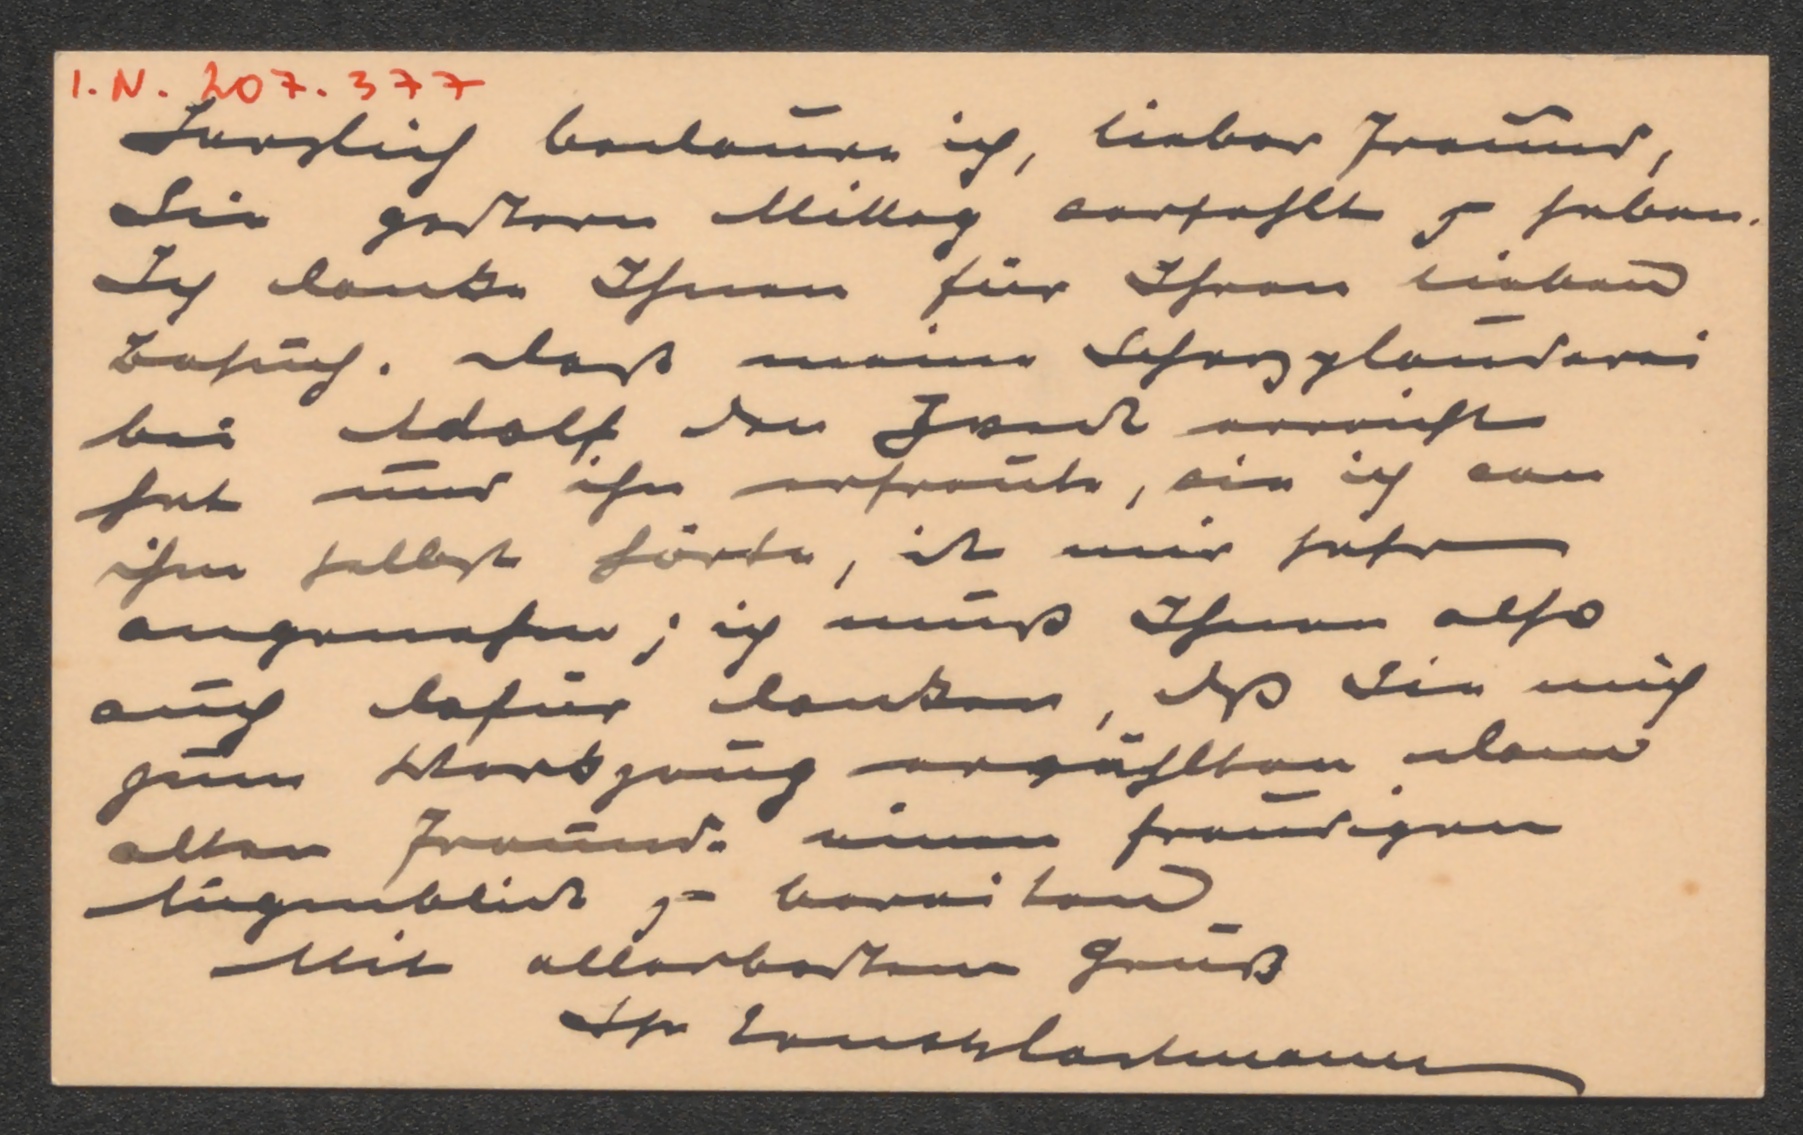 I.N. 207.377
Herzlich bedaure ich, lieber Freund,
Sie gestern Mittag verfehlt zu haben.
Ich danke Ihnen für Ihren lieben
Besuch. Daß meine Scherzplauderei
bei Adolf den Zweck erreicht
hat und ihn erfreute, wie ich von
ihm selbst hörte, ist mir sehr
angenehm; ich muß Ihnen also
auch dafür danken, daß Sie mich
zum Werkzeug erwählten dem
alten Freunde einen freudigen
Augenblick zu bereiten.
Mit allerbestem Gruß
Ihr